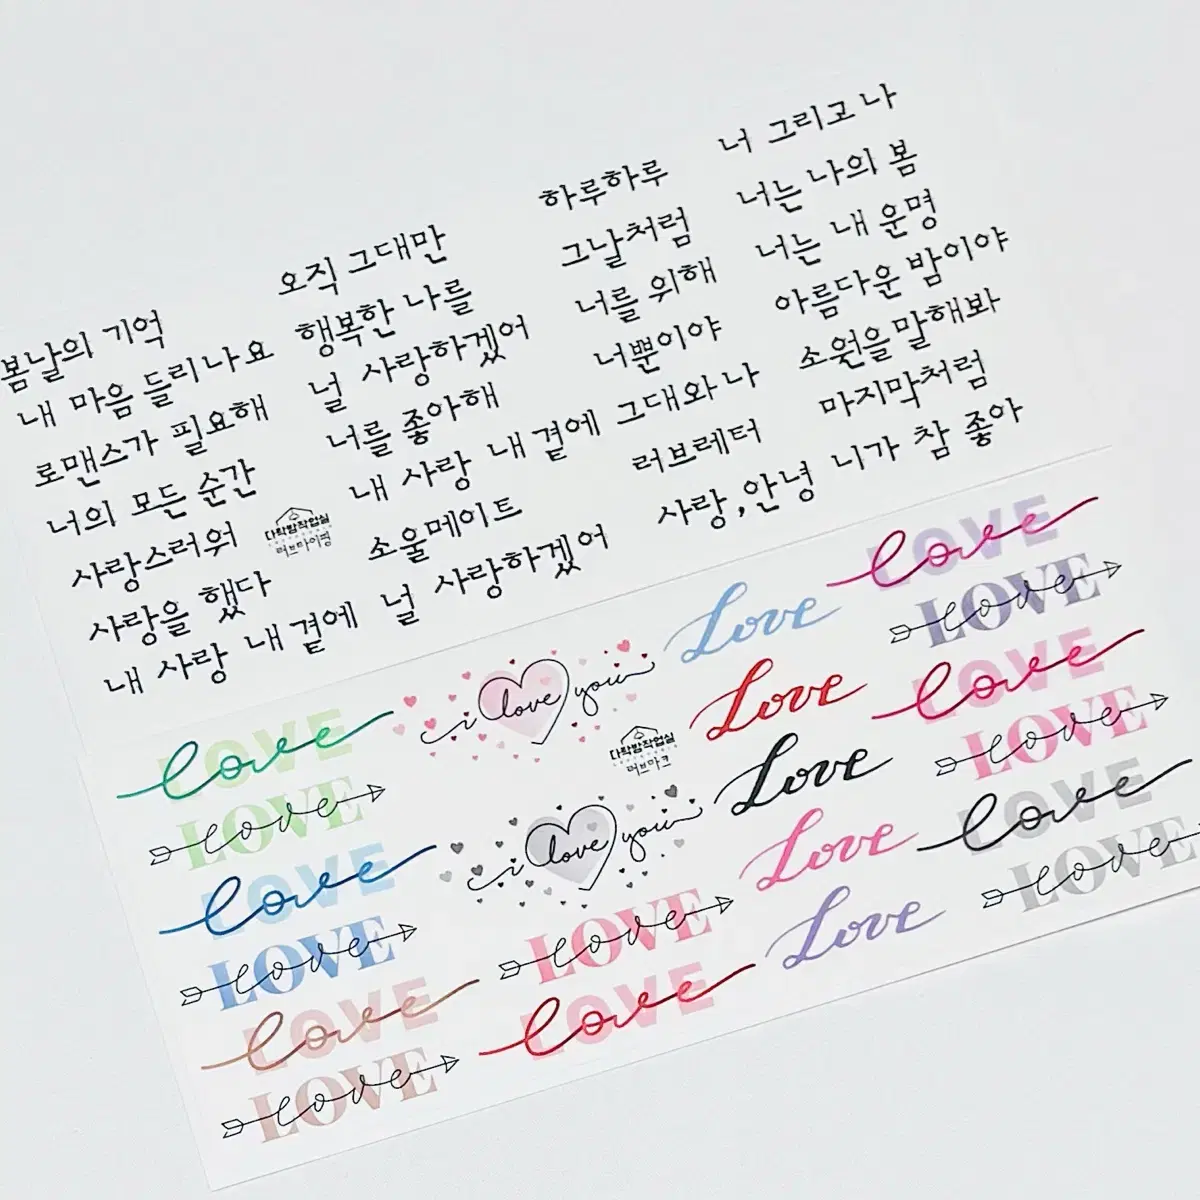 봄날의 기억
내 마음 들리나요
로맨스가 필요해
너의 모든 순간
사랑스러워
사랑을 했다
내 사랑 내 곁에
오직 그대만
행복한 나를
널 사랑하겠어
너를 좋아해
내 사랑 내 곁에
소울메이트
널 사랑하겠어
다락방작업실
러브마이펑
하루하루
그날처럼
너를 위해
너뿐이야
그대와 나
러브레터
사랑,안녕
너 그리고 나
너는 나의 봄
너는 내 운명
아름다운 밤이야
소원을 말해봐
마지막처럼
니가 참 좋아
LOVE love
LOVE love
LOVE love
LOVE love
LOVE love
LOVE love
i love you
i love you
LOVE love
LOVE love
다락방작업실
러브마크
Love
Love
Love
Love
Love
LOVE love
LOVE love
LOVE love
LOVE love
LOVE love
LOVE love